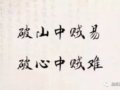 破山中贼易
破心中贼难